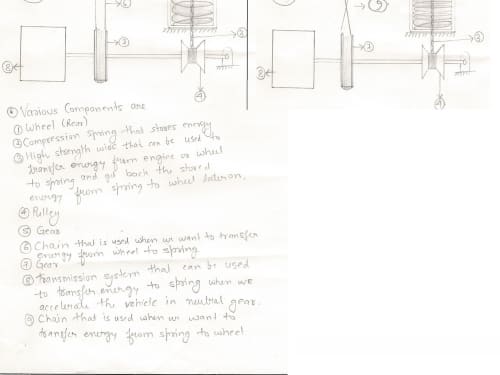 6
3
2
8
4
9
3
2
8
4
Various Components are
① Wheel (Rear)
② Compression spring that stores energy
③ High strength wire that can be used to
transfer energy from engine or wheel
to spring and get back the stored
energy from spring to wheel later on.
④ Pulley
⑤ Gear
⑥ Chain that is used when we want to transfer
energy from wheel to spring
⑦ Gear
⑧ Transmission system that can be used
to transfer energy to spring when we
accelerate the vehicle in neutral gear.
⑨ Chain that is used when we want to
transfer energy from spring to wheel